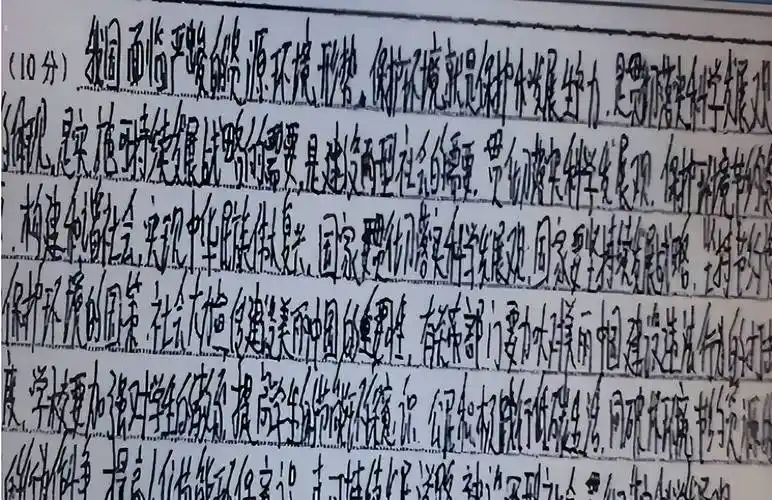 (10分) 我国面临严峻的资源环境形势,保护环境就是保护和发展生产力,是贯彻落实科学发展观
的体现,是实施可持续发展战略的需要,是建设两型社会的需要,贯彻落实科学发展观,保护环境节约资
,构建和谐社会,实现中华民族伟大复兴,国家要贯彻落实科学发展观,国家要坚持持续发展战略,坚持节约
保护环境的国策,社会大力宣传建设美丽中国的重要性,有关部门要加大对美丽中国建设违法行为的打击
度,学校要加强对学生的教育,提高学生的节能环保意识,公民积极践行低碳生活,同破坏环境,节约资源的
的行为作斗争,提高人们节能环保意识